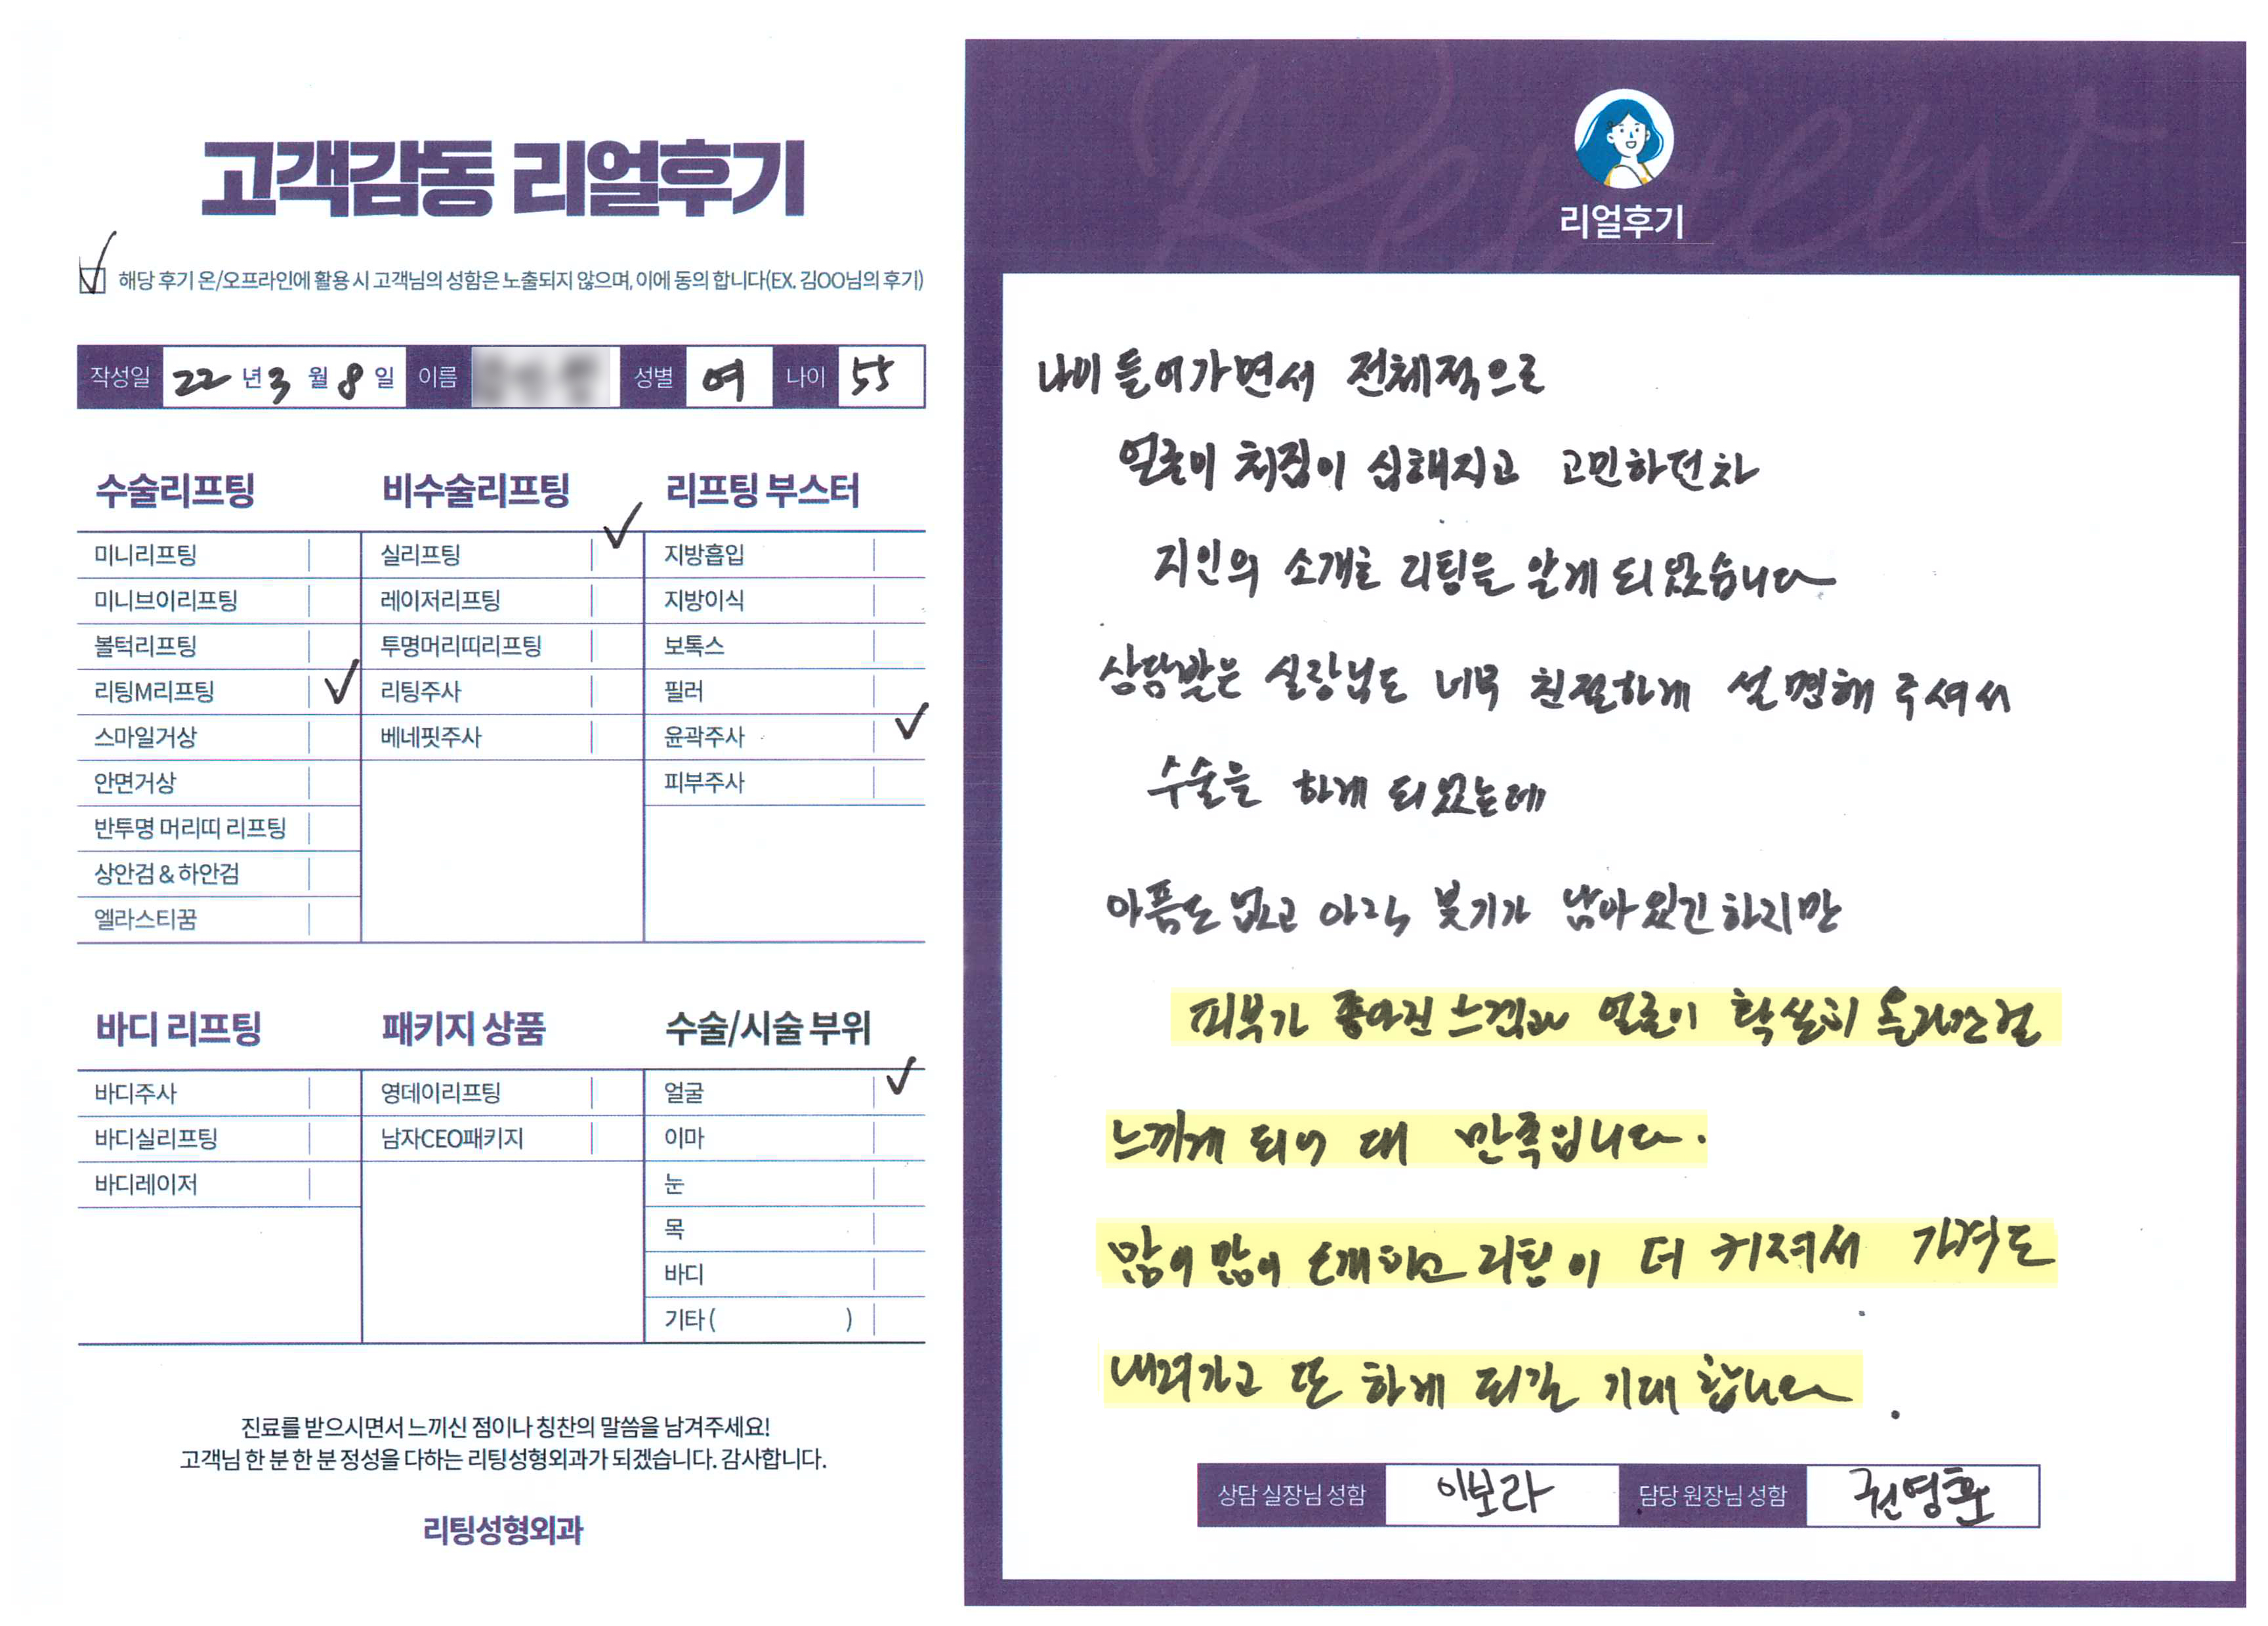 고객감동 리얼후기
해당 후기 온/오프라인에 활용 시 고객님의 성함은 노출되지 않으며, 이에 동의 합니다(EX. 김OO님의 후기)
작성일 22 년 3 월 8 일 이름 성별 여 나이 55
수술리프팅
미니리프팅
미니브이리프팅
볼턱리프팅
리팅M리프팅
스마일거상
안면거상
반투명 머리띠 리프팅
상안검 & 하안검
엘라스티꿈
비수술리프팅
실리프팅
레이저리프팅
투명머리띠리프팅
리팅주사
베네핏주사
리프팅 부스터
지방흡입
지방이식
보톡스
필러
윤곽주사
피부주사
바디 리프팅
바디주사
바디실리프팅
바디레이저
패키지 상품
영데이리프팅
남자CEO패키지
수술/시술 부위
얼굴
이마
눈
목
바디
기타 ( )
진료를 받으시면서 느끼신 점이나 칭찬의 말씀을 남겨주세요!
고객님 한 분 한 분 정성을 다하는 리팅성형외과가 되겠습니다. 감사합니다.
리팅성형외과
Review
리얼후기
나이 들어가면서 전체적으로
얼굴이 처짐이 심해지고 고민하던차
지인의 소개로 리팅을 알게 되었습니다
상담받은 실장님도 너무 친절하게 설명해 주셔서
수술을 하게 되었는데
아픔도 없고 아직 붓기가 남아있긴하지만
피부가 좋아진 느낌과 얼굴이 확실히 올라간걸
느끼게 되어 대 만족입니다.
많이 많이 소개하고 리팅이 더 커져서 가격도
내려가고 또 하게 되길 기대 합니다.
상담 실장님 성함 이보라 담당 원장님 성함 권영훈